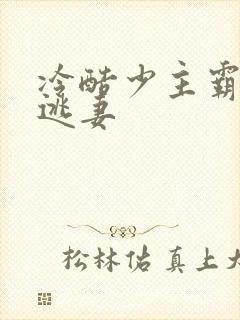 冷酷少主霸
逃妻
松林佑真上大